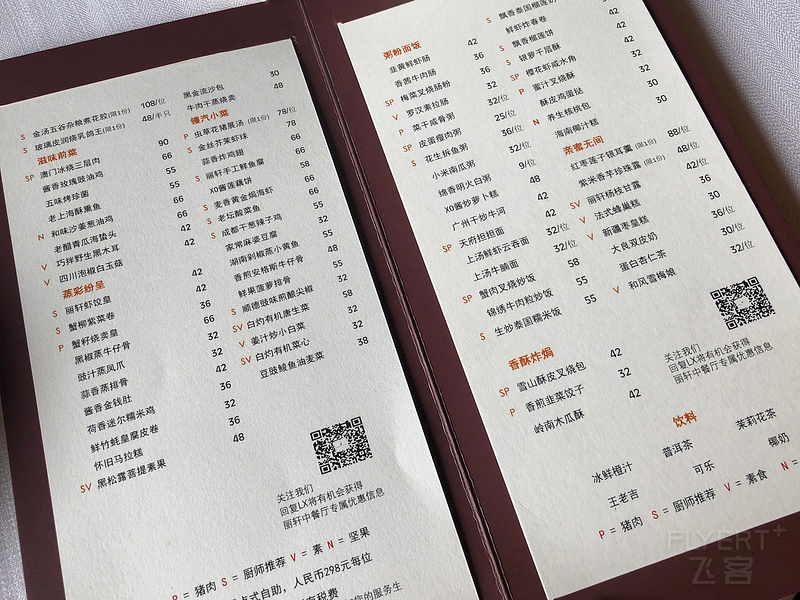 S 金汤五谷杂粮煮花胶(限1份) 108/位
S 玻璃皮润烧乳鸽王(限1份) 48/半只
滋味前菜
SP 澳门冰烧三层肉 90
酱香玫瑰豉油鸡 66
五味烤珍菌 55
老上海酥熏鱼 55
N 和味沙姜葱油鸡 66
老醋青瓜海蜇头 66
V 巧拌野生黑木耳 42
V 四川泡椒白玉菇 42
蒸彩纷呈
S 丽轩虾饺皇 42
S 蟹柳紫菜卷 42
P 蟹籽烧卖皇 36
黑椒蒸牛仔骨 66
豉汁蒸凤爪 32
蒜香蒸排骨 32
酱香金钱肚 42
荷香迷尔糯米鸡 36
鲜竹蚝皇腐皮卷 32
怀旧马拉糕 36
SV 黑松露菩提素果 32
48
黑金流沙包 30
牛肉干蒸烧卖 48
镬汽小菜
P 虫草花猪展汤 (限1份) 78/位
S 金丝芥茉虾球 78
蒜香炸鸡翅 66
S 丽轩手工鲜鱼腐 58
XO酱莲藕饼 55
S 麦香黄金焗海虾 66
S 老坛酸菜鱼 66
S 成都干葱辣子鸡 55
家常麻婆豆腐 32
湖南剁椒蒸小黄鱼 55
香煎安格斯牛仔骨 48
鲜果菠萝排骨 55
S 顺德豉味煎酿尖椒 32
SV 白灼有机唐生菜 58
V 姜汁炒小白菜 32
SV 白灼有机菜心 32
豆豉鲮鱼油麦菜 38
关注我们
回复LX将有机会获得
丽轩中餐厅专属优惠信息
P = 猪肉 S = 厨师推荐 V = 素 N = 坚果
点式自助，人民币298元每位
粥粉面饭
韭黄鲜虾肠 42
香酱牛肉肠 36
SP 梅菜叉烧肠粉 36
V 罗汉素拉肠 32
P 菜干咸骨粥 32/位
SP 皮蛋瘦肉粥 25/位
S 花生拆鱼粥 36/位
小米南瓜粥 32/位
绵香明火白粥 9/位
XO酱炒萝卜糕 48
广州干炒牛河 42
SP 天府担担面 42
上汤鲜虾云吞面 32/位
上汤牛腩面 32/位
SP 蟹肉叉烧炒饭 58
锦绣牛肉粒炒饭 55
S 生炒泰国糯米饭 55
香酥炸焗
SP 雪山酥皮叉烧包 42
P 香煎韭菜饺子 32
岭南木瓜酥 42
S 飘香泰国榴莲
鲜虾炸春卷 42
S 飘香榴莲饼 42
S 银萝千层酥 42
SP 樱花虾咸水角 32
P 蜜汁叉烧酥 42
酥皮鸡蛋挞 30
N 养生核桃包 30
海南椰汁糕
亲蜜无间
红枣莲子银耳羹 (限1份) 88/位
紫米香芋珍珠露 (限1份) 48/位
SV 丽轩杨枝甘露 42/位
V 法式蜂巢糕 36
V 新疆枣皇糕 30
大良双皮奶 36/位
蛋白杏仁茶 30/位
V 和风雪梅娘 32/位
关注我们
回复LX将有机会获得
丽轩中餐厅专属优惠信息
饮料
冰鲜橙汁 普洱茶 茉莉花茶
王老吉 可乐 椰奶
P = 猪肉 S = 厨师推荐 V = 素食 N =
FLYERT+
飞客